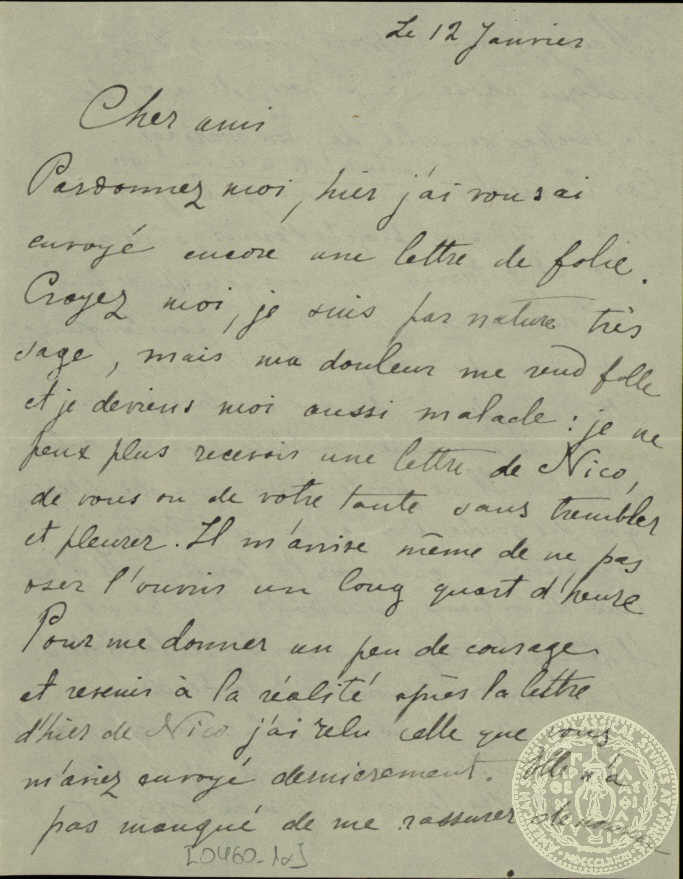 Le 12 Janvier
Cher ami
Pardonnez moi, hier j'ai vous ai
envoyé encore une lettre de folie.
Croyez moi, je suis par nature très
sage, mais ma douleur me rend folle
et je deviens moi aussi malade : je ne
peux plus recevoir une lettre de Nico,
de vous ou de votre tante sans trembler
et pleurer. Il m'arrive même de ne pas
oser l'ouvrir un long quart d'heure
Pour me donner un peu de courage
et revenir à la réalité après la lettre
d'hier de Nico j'ai relu celle que vous
m'aviez envoyé dernièrement. Elle n'a
pas manqué de me rassurer
[0460-1α]
AMERICAN SCHOOL OF CLASSICAL STUDIES AT ATHENS